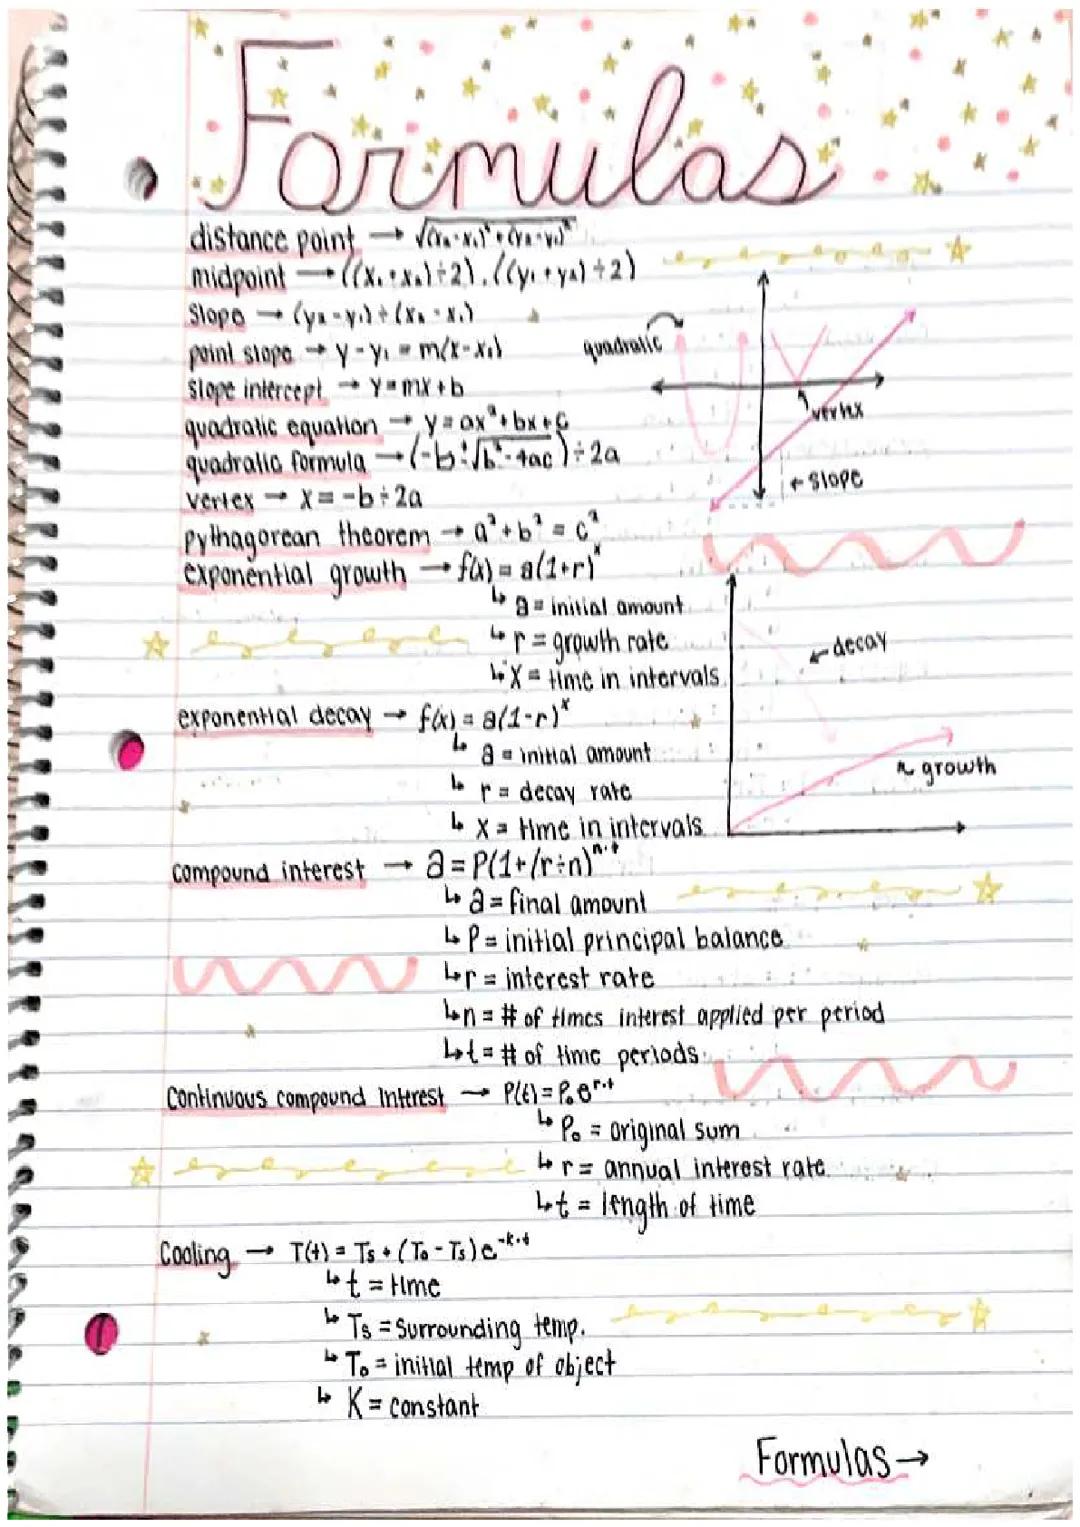 Formulas
distance point → √(x₂-x₁)²+(y₂-y₁)²
midpoint → ((x₁+x₂)÷2),((y₁+y₂)÷2)
Slope → (y₂-y₁)÷(x₂-x₁)
point slope → y-y₁ = m(x-x₁)
quadratic
slope intercept → y=mx+b
vertex
quadratic equation → y=ax²+bx+c
quadratic formula → (-b±√b²-4ac)÷2a
← slope
vertex → x = -b÷2a
pythagorean theorem → a²+b² = c²
exponential growth → f(x) = a(1+r)ˣ
↳ a = initial amount
↳ r = growth rate
← decay
↳ x = time in intervals
exponential decay → f(x) = a(1-r)ˣ
↳ a = initial amount
growth
↳ r = decay rate
↳ x = time in intervals
compound interest → a = P(1+(r÷n)ⁿ·ᵗ
↳ a = final amount
↳ P = initial principal balance
↳ r = interest rate
↳ n = # of times interest applied per period
↳ t = # of time periods
Continuous compound Interest → P(t) = P₀eʳ·ᵗ
↳ P₀ = original sum
↳ r = annual interest rate
↳ t = length of time
Cooling → T(t) = Ts + (T₀ - Ts)e⁻ᵏ·ᵗ
↳ t = time
↳ Ts = Surrounding temp.
↳ T₀ = initial temp of object
↳ K = constant
Formulas →